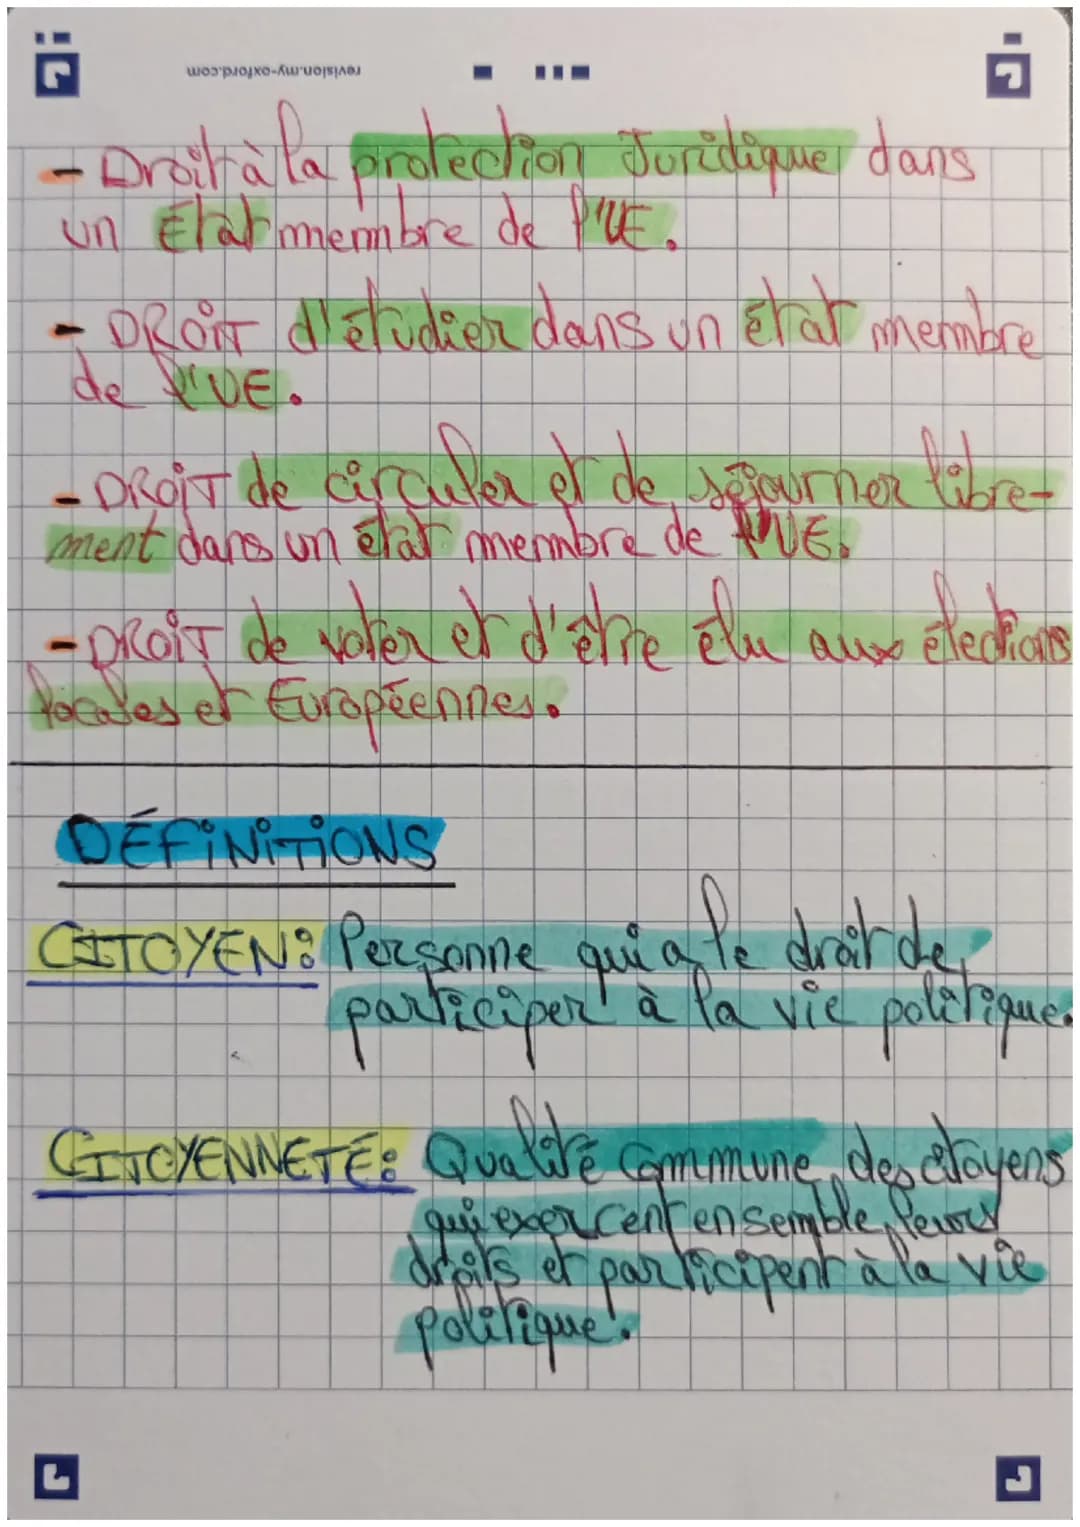 revision.my-oxford.com
- Droit à la protection Juridique dans
un État membre de l'UE.
- DROiT d'étudier dans un état membre
de l'UE.
- DROiT de circuler et de séjourner libre-
ment dans un état membre de l'UE.
- DROiT de voter et d'être élu aux élections
locales et Européennes.
DÉFiNiTiONS
CITOYEN: Personne qui a le droit de
participer à la vie politique.
CITOYENNETÉ: Qualité commune des citoyens
qui exercent ensemble leurs
droits et participent à la vie
politique.